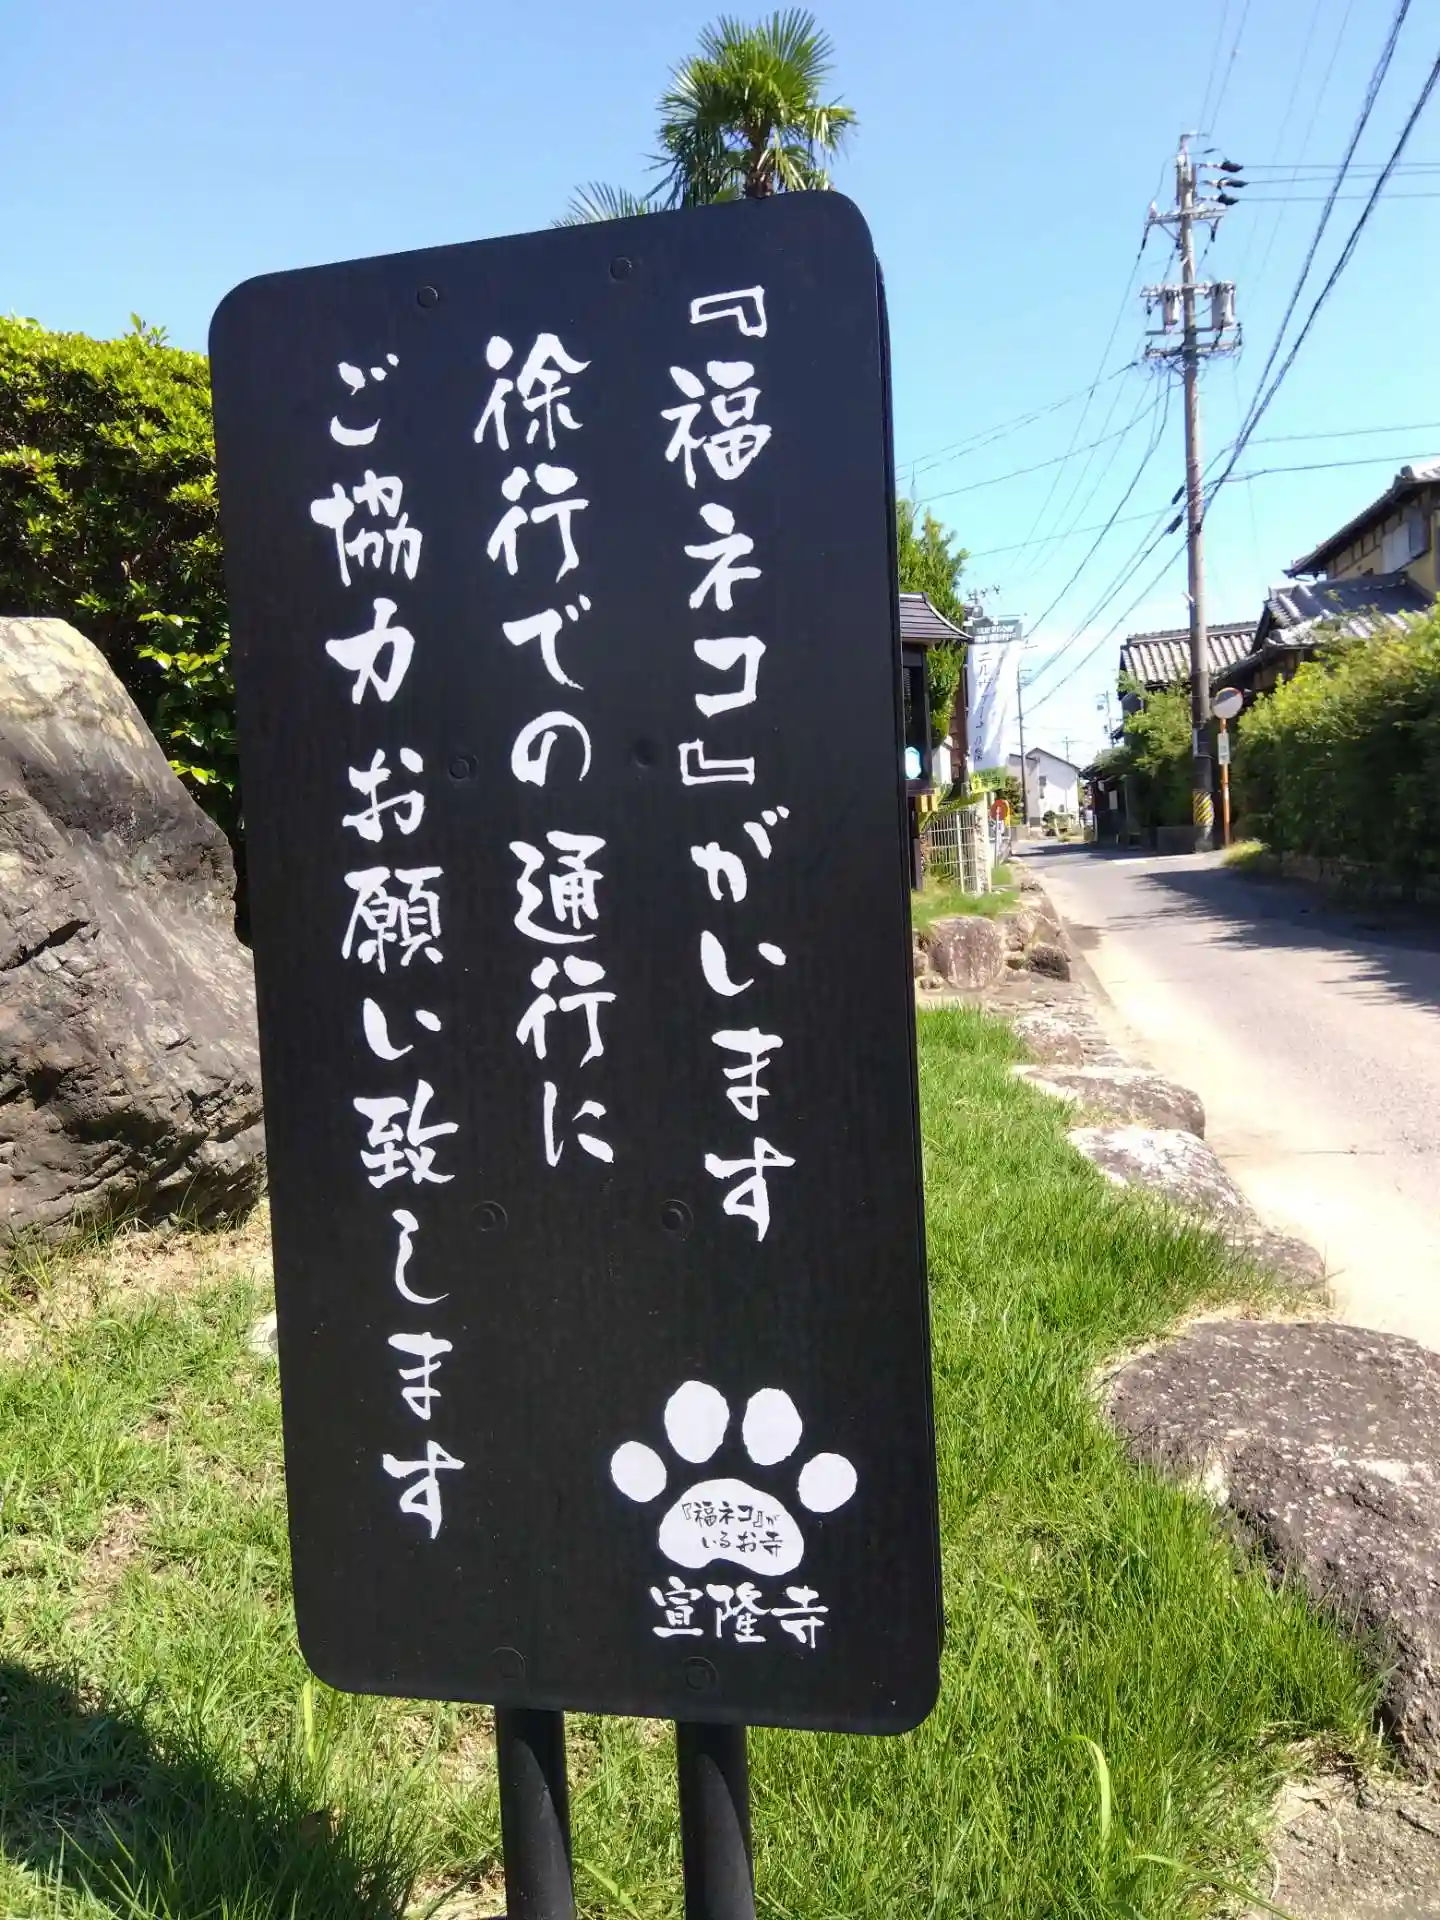 『福ネコ』がいます
徐行での通行に
ご協力お願い致します
『福ネコ』が
いるお寺
宣隆寺